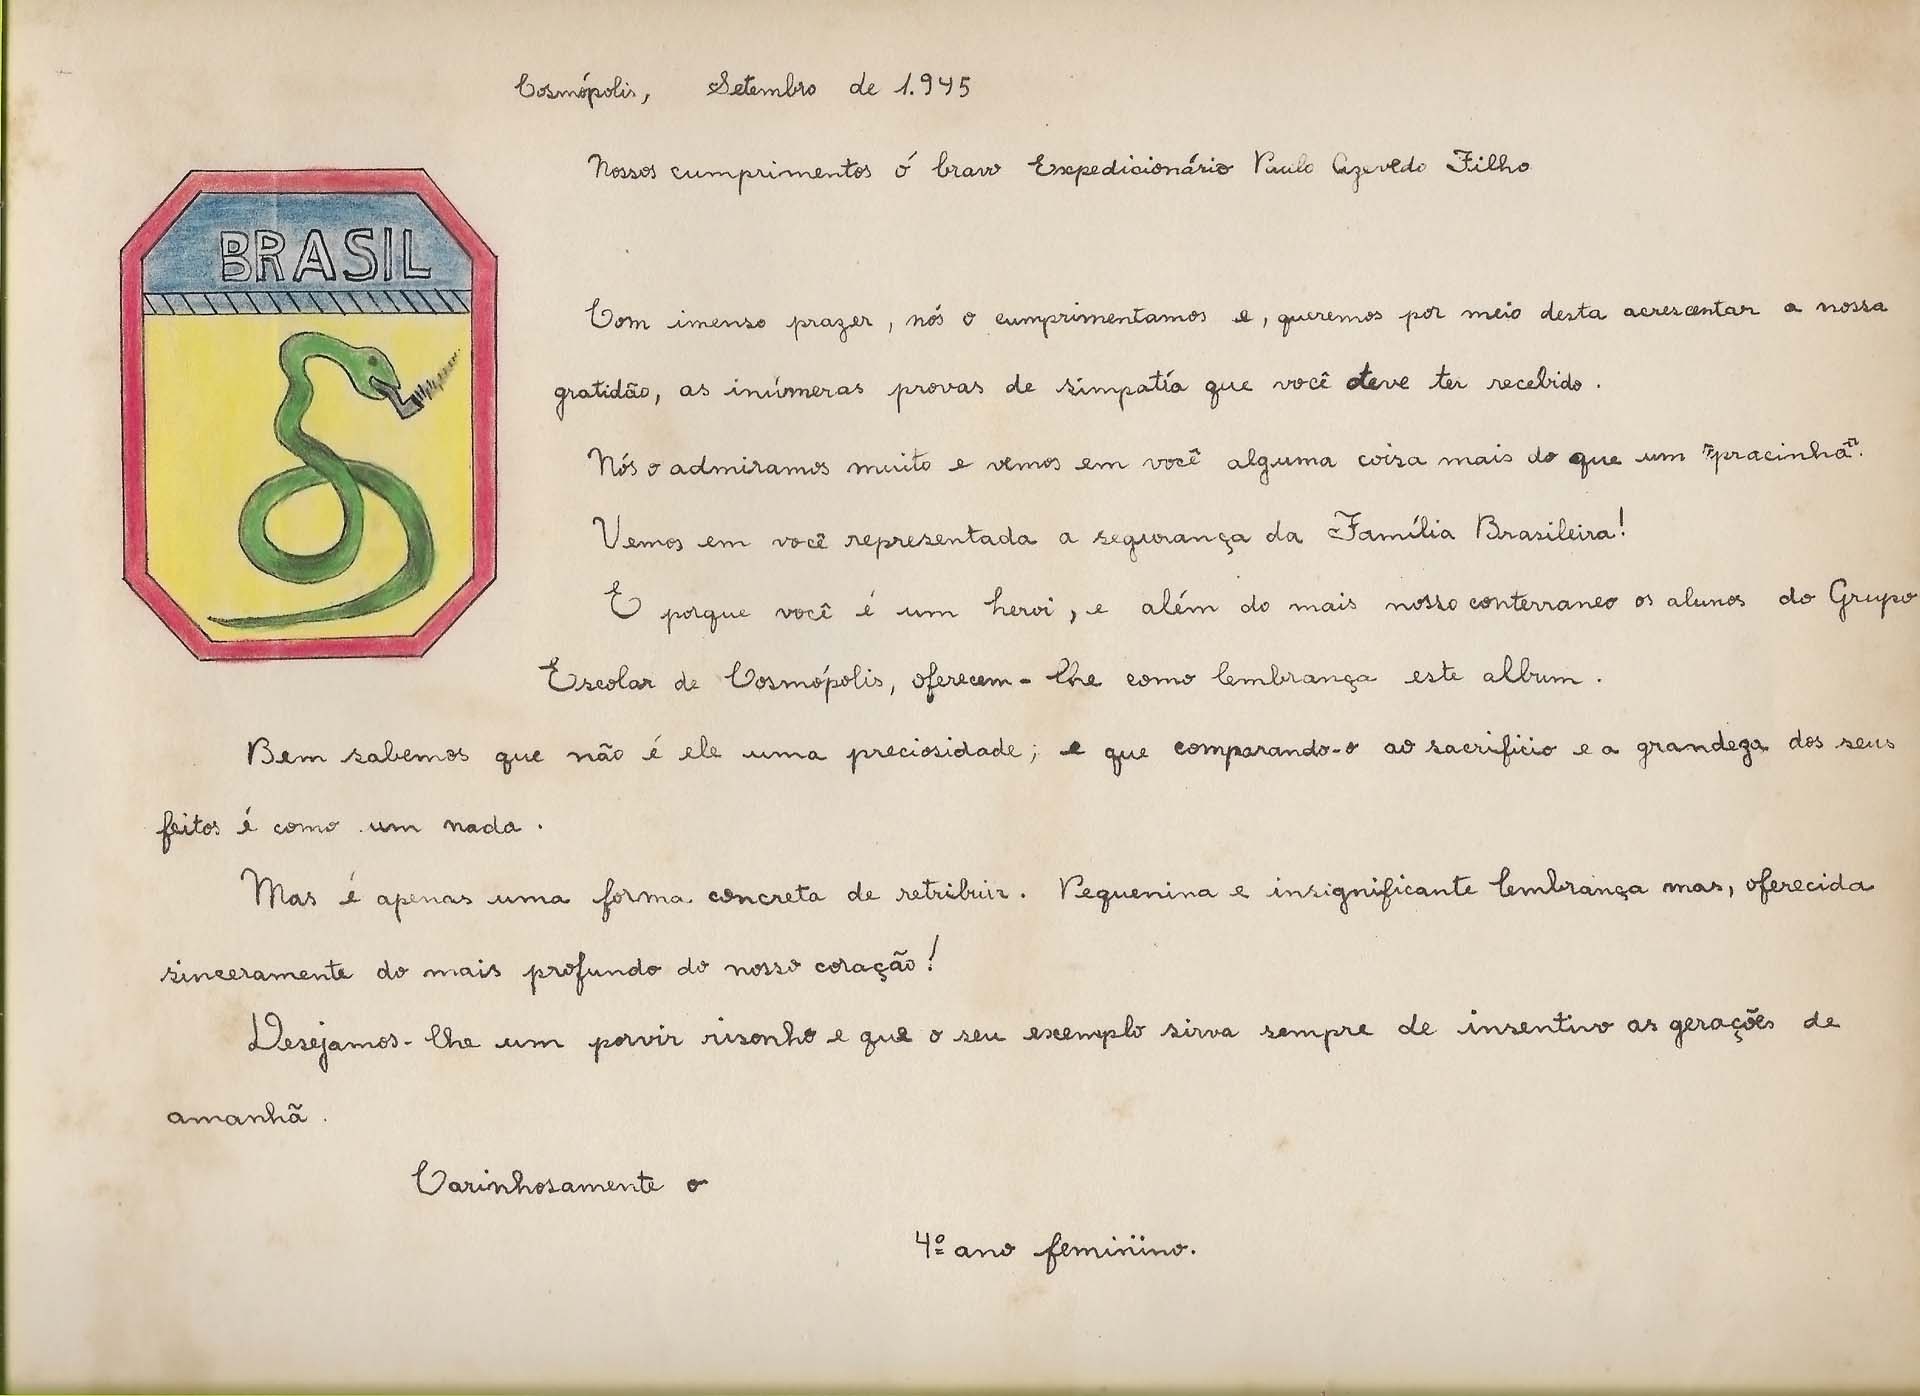 Cosmópolis, Setembro de 1.945
Nossos cumprimentos ó bravo Expedicionário Paulo Azevedo Filho
BRASIL
Com imenso prazer, nós o cumprimentamos e, queremos por meio desta acrescentar a nossa
gratidão, as inúmeras provas de simpatía que você deve ter recebido.
Nós o admiramos muito e vemos em você alguma coisa mais do que um "pracinhã".
Vemos em você representada a segurança da Família Brasileira!
E porque você é um heroi, e além do mais nosso conterraneo os alunos do Grupo
Escolar de Cosmópolis, oferecem-lhe como lembrança este album.
Bem sabemos que não é ele uma preciosidade; e que comparando-o ao sacrificio e a grandeza dos seus
feitos é como um nada.
Mas é apenas uma forma concreta de retribuir. Pequenina e insignificante lembrança mas, oferecida
sinceramente do mais profundo do nosso coração!
Desejamos-lhe um porvir risonho e que o seu exemplo sirva sempre de insentivo as gerações de
amanhã.
Carinhosamente o
4º ano feminino.